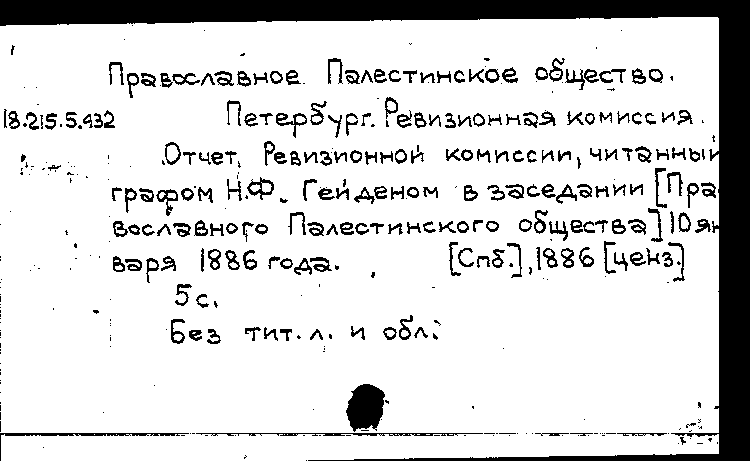 Православное Палестинское общество.
18.215.5.432 Петербург. Ревизионная комиссия.
Отчет Ревизионной комиссии, читанный
графом Н.Ф. Гейденом в заседании [Пра
вославного Палестинского общества] 10 ян
варя 1886 года. [Спб.], 1886 [ценз.]
5 с.
Без тит. л. и обл.